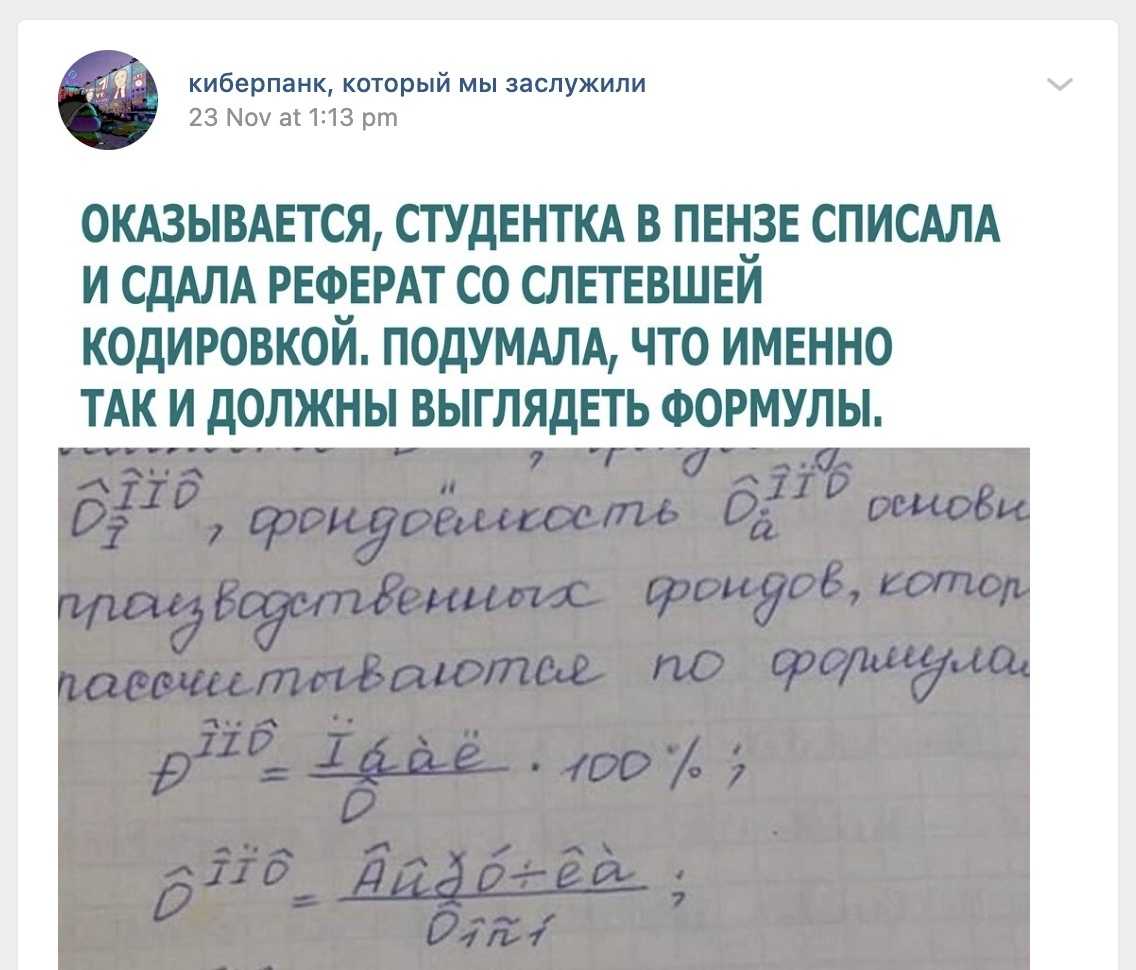 киберпанк, который мы заслужили
23 Nov at 1:13 pm
ОКАЗЫВАЕТСЯ, СТУДЕНТКА В ПЕНЗЕ СПИСАЛА
И СДАЛА РЕФЕРАТ СО СЛЕТЕВШЕЙ
КОДИРОВКОЙ. ПОДУМАЛА, ЧТО ИМЕННО
ТАК И ДОЛЖНЫ ВЫГЛЯДЕТЬ ФОРМУЛЫ.
Ô ÎÏÔ Î , фондоёмкость Ô ÎÏÔ å основн
производственных фондов, котор
рассчитываются по формула
Ð ÎÏÔ = Ïáàë / Ô · 100% ;
Ô ÎÏÔ = Âûðó÷êà / Ôîñí ;